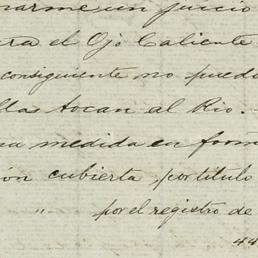 narme un juicio
el Ojo Caliente
consiguiente no pued
llas tocan al Rio.
na medida en form
ón cubierta, por título
" por el registro de
44